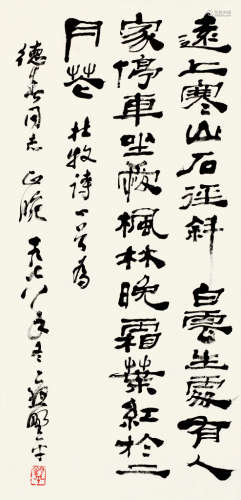 遠上寒山石徑斜白雲生處有人
家停車坐愛楓林晚霜葉紅於二
月花 杜牧詩一首為
德春同志正腕 一九七八年冬